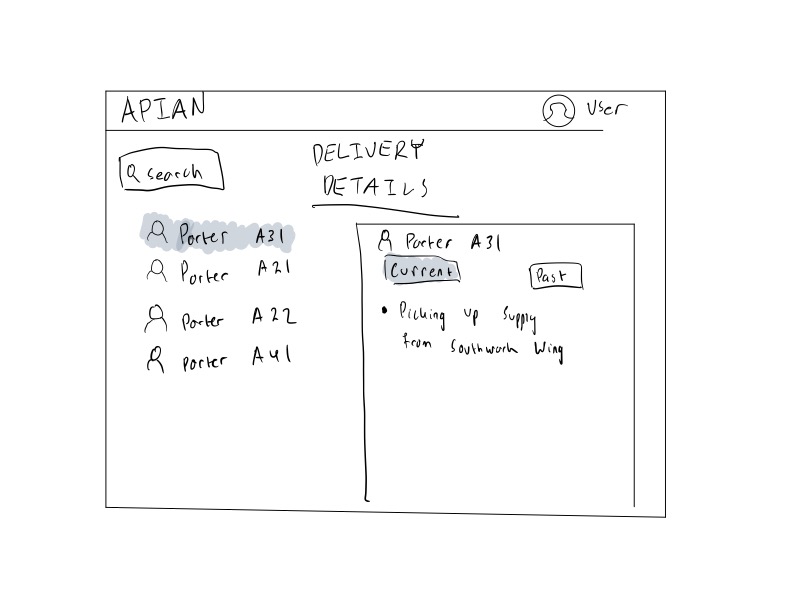 APIAN
User
search
DELIVERY
DETAILS
Porter A31
Porter A21
Porter A22
Porter A41
Porter A31
Current
Past
• Picking up supply
from Southwark Wing